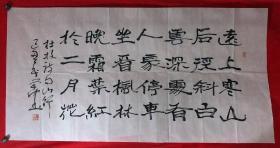 遠上寒山
石徑斜白
雲深處有
人家停車
坐愛楓林
晚霜葉紅
於二月花
杜牧詩句山行